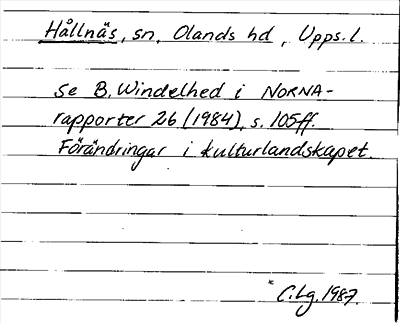 Hållnäs, sn, Olands hd, Upps. l.
se B. Windelhed i NORNA-
rapporter 26 (1984), s. 105ff.
Förändringar i kulturlandskapet.
C. Lg. 1987.